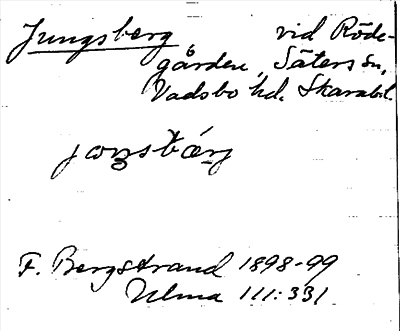 Jungsberg vid Röde-
gården, Säters sn,
Vadsbo hd. Skarab.l.
F. Bergstrand 1898-99
Ulma 111:331